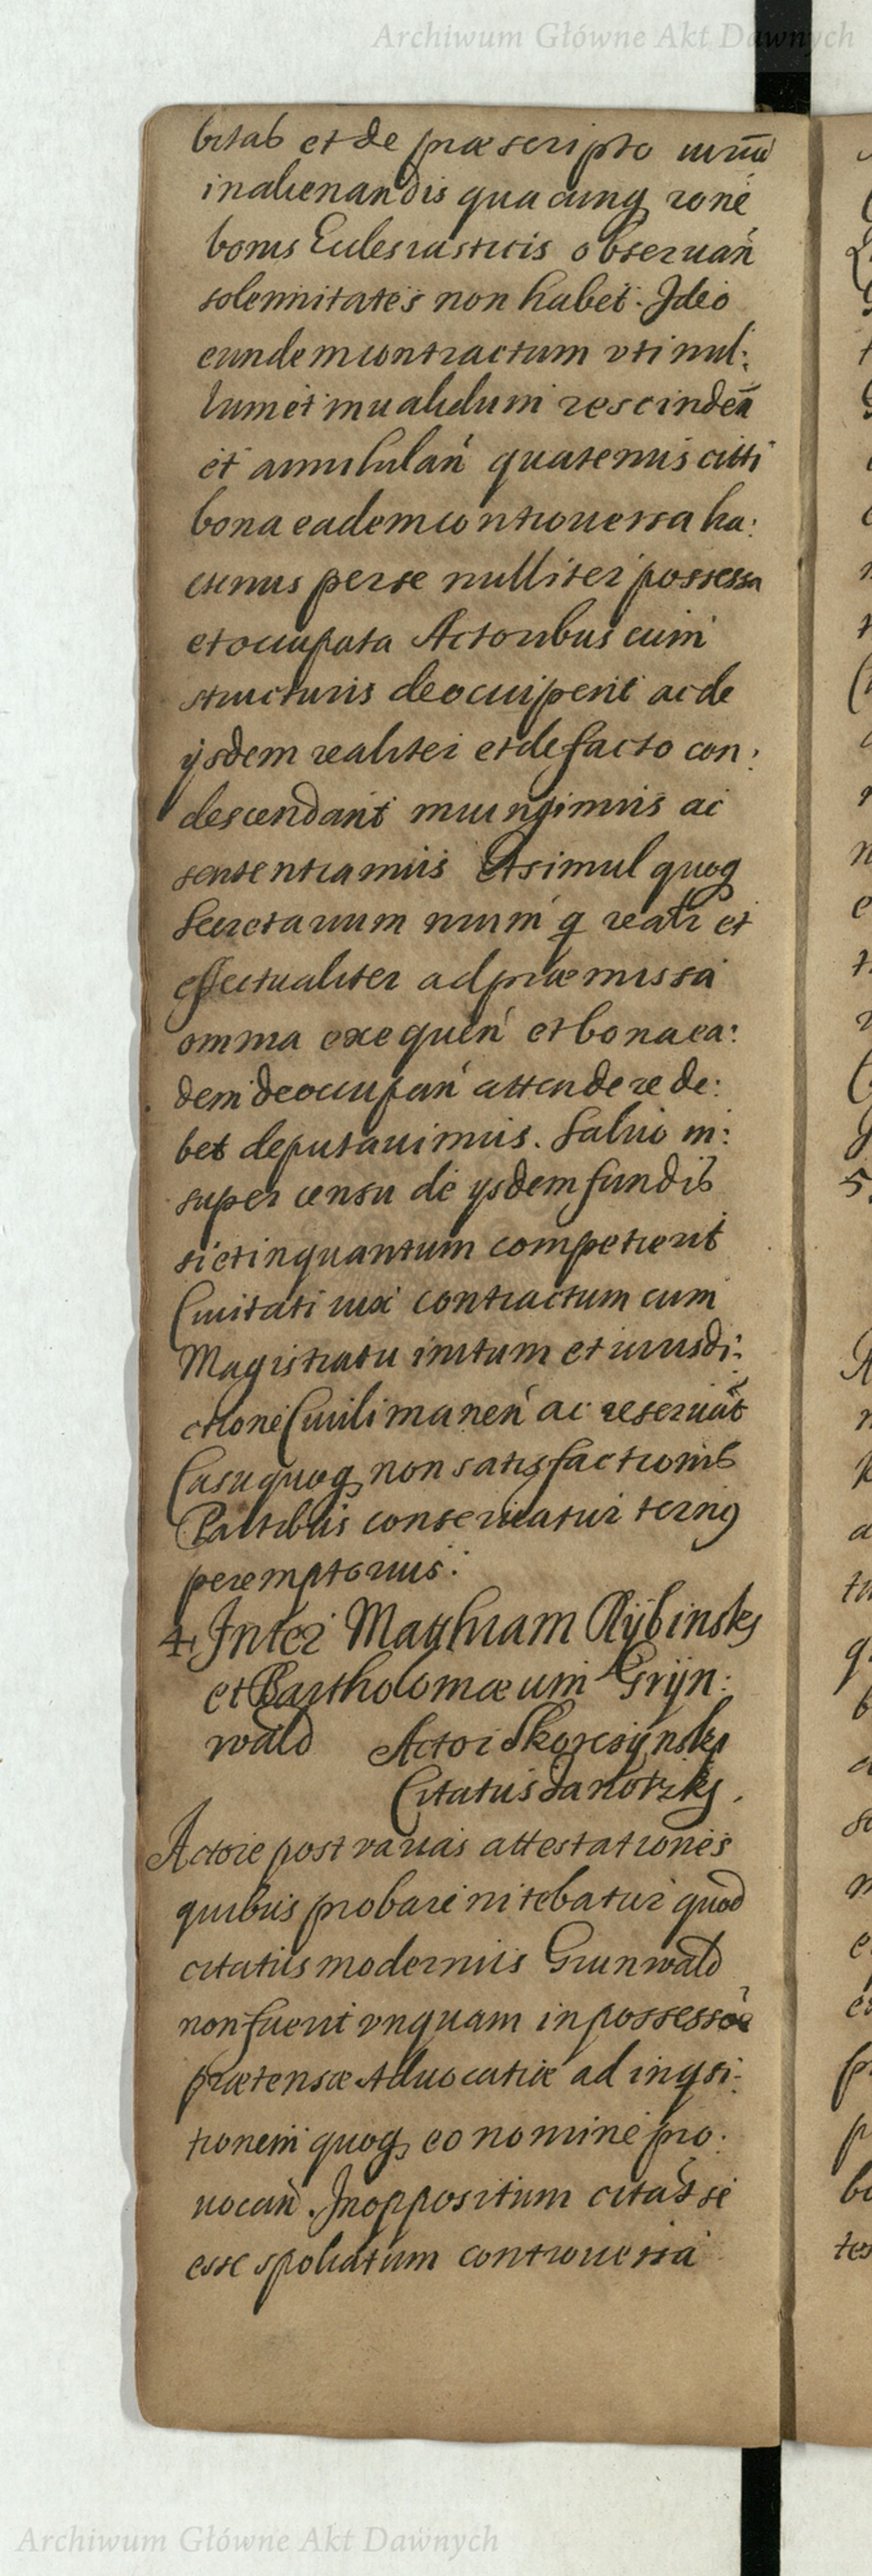 Archiwum Główne Akt Dawnych
bitas et de præscripto iuriu
in alienandis quacunq rone
bonis Ecclesiasticis obseruan
solennitates non habet. Ideo
eundem contractum vti nul:
lum et inualidum rescinden
et annihilan quatenus citti
bona eadem controuersa ha:
ctenus per se nulliter possessa
et occupata Actoribus cum
structuris deoccupent ac de
ijsdem realiter et de facto con:
descendant iniungimus ac
sententiamus Et simul quoq
Secretarium nrum q realr et
effectualiter ad præmissa
omnia exequen et bona ea:
dem deoccupan attendere de:
bet deputauimus. Saluo in:
super censu de ijsdem fundis
sic et in quantum competierit
Ciuitati iux contractum cum
Magistratu initum et iurisdi:
ctione Ciuili manen ac reseruat
Casu quoq non satisfactionis
Partibus conseruatur termg
peremptorius:
4. Inter Matthiam Rÿbinsky
et Bartholomæum Grÿn:
wald Actor Skorcsÿnsky
Citatus Janotzky.
Actore post varias attestationes
quibus probare nitebatur quod
citatus modernus Grunwald
non fuerit vnquam in possessõe
prætensæ Aduocatiæ ad inqsi:
tionem quoq eo nomine pro:
uocan. In oppositum citat se
esse spoliatum controuersa
Archiwum Główne Akt Dawnych